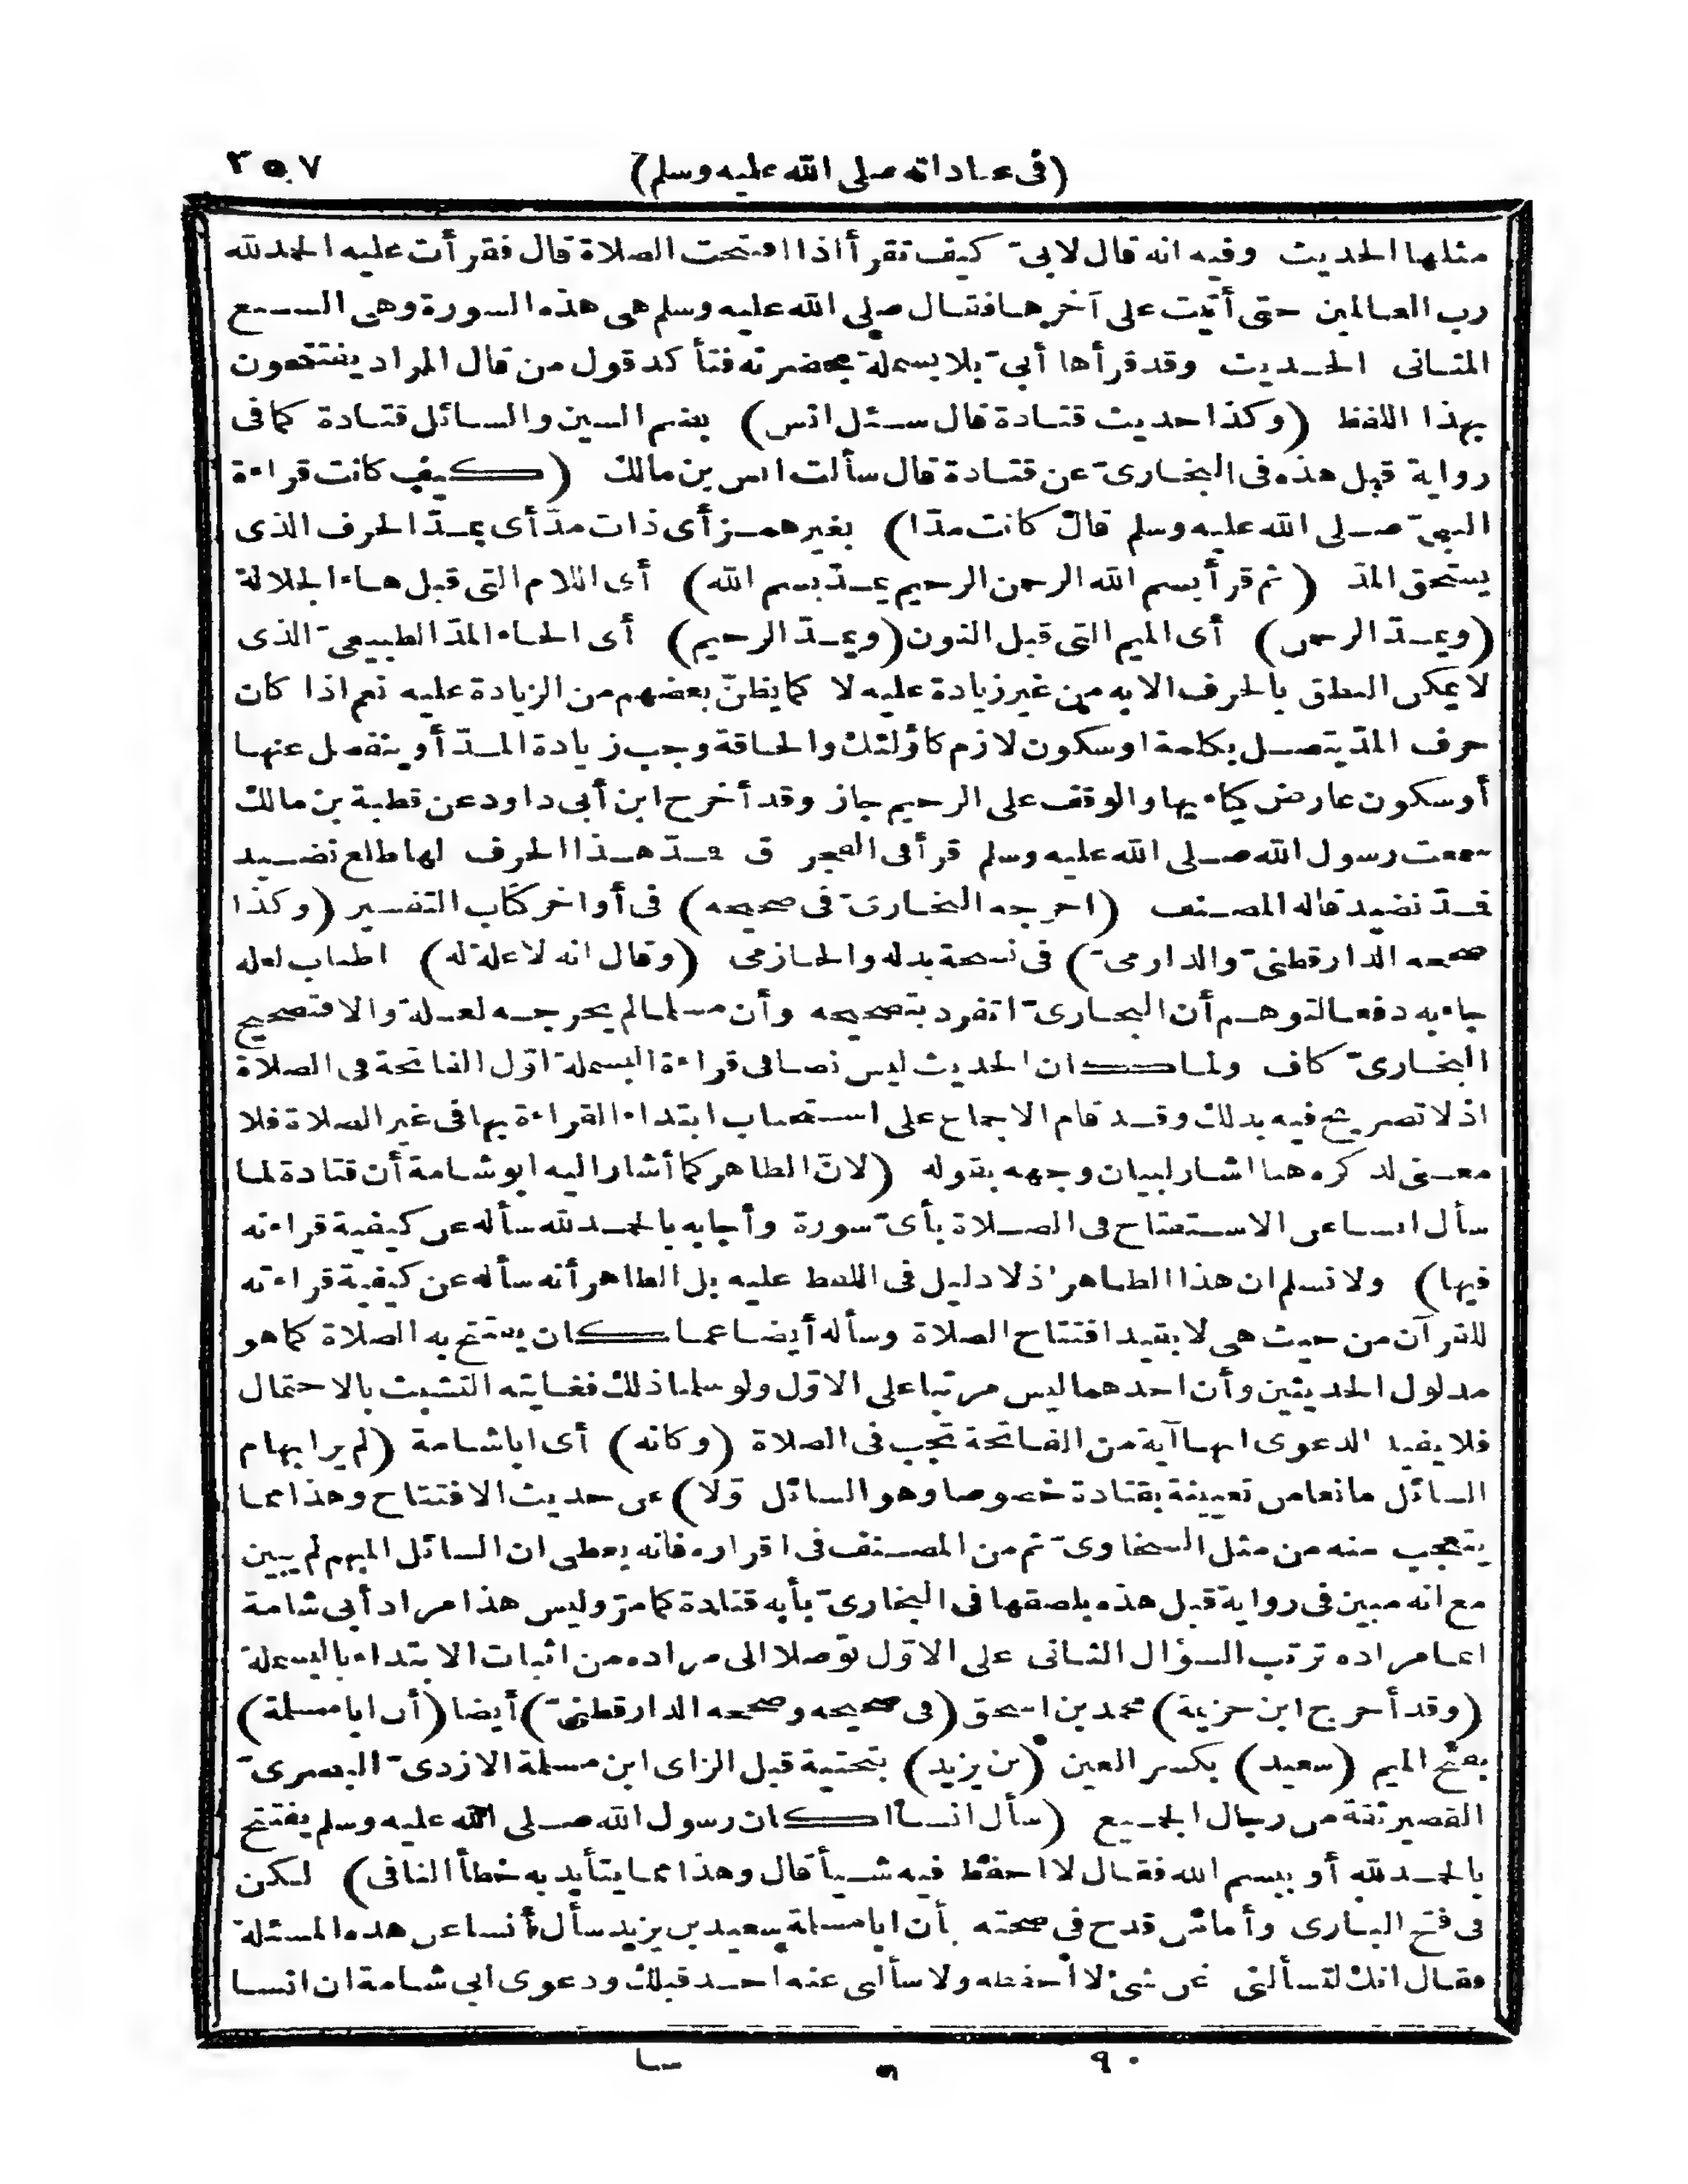 (فى عاداته صلى الله عليه وسلم)
٣٥٧
مثلها الحديث وفيه انه قال لابىّ كيف تقرأ اذا افتتحت الصلاة قال فقرأت عليه الحمد لله
رب العالمين حتى أتيت على آخرها فقال صلى الله عليه وسلم هى هذه السورة وهى السبع
المثانى الحديث وقد قرأها أبىّ بلا بسملة بحضرته فتأكد قول من قال المراد يفتتحون
بهذا اللفظ (وكذا حديث قتادة قال سئل انس) بضم السين والسائل قتادة كما فى
رواية قبل هذه فى البخارىّ عن قتادة قال سألت انس بن مالك (كيف كانت قراءة
النبىّ صلى الله عليه وسلم قال كانت مدّا) بغير همز أى ذات مدّ أى بمدّ الحرف الذى
يستحق المدّ (ثم قرأ بسم الله الرحمن الرحيم يمدّ بسم الله) أى اللام التى قبل هاء الجلالة
(ويمدّ الرحمن) أى الميم التى قبل النون (ويمدّ الرحيم) أى الحاء المدّ الطبيعىّ الذى
لا يمكن النطق بالحرف الا به من غير زيادة عليه لا كما يظنّ بعضهم من الزيادة عليه نعم اذا كان
حرف المدّ يتصل بكلمة او سكون لازم كاؤلئك والحاقة وجب زيادة المدّ أو ينفصل عنها
أو سكون عارض كياءيها والوقف على الرحيم جاز وقد أخرج ابن أبى داود عن قطبة بن مالك
سمعت رسول الله صلى الله عليه وسلم قرأ فى الفجر ق فمدّ هذا الحرف لها طلع نضيد
فمدّ نضيد قاله المصنف (اخرجه البخارىّ فى صحيحه) فى أواخر كتاب التفسير (وكذا
صححه الدارقطنىّ والدارمىّ) فى نسخة بدله والحازمى (وقال انه لا علة له) اطناب لعله
جاء به دفعا لتوهم أن البخارىّ انفرد بتصحيحه وأن مسلما لم يخرجه لعلة والا فتصحيح
البخارىّ كاف ولما كان الحديث ليس نصا فى قراءة البسملة اوّل الفاتحة فى الصلاة
اذ لا تصريح فيه بذلك وقد قام الاجماع على استحباب ابتداء القراءة بها فى غير الصلاة فلا
معنى لذكره هنا اشار لبيان وجهه بقوله (لانّ الظاهر كما أشار اليه ابو شامة أن قتادة لما
سأل انسا عن الاستفتاح فى الصلاة بأىّ سورة وأجابه بالحمد لله سأله عن كيفية قراءته
فيها) ولا نسلم ان هذا الظاهر اذ لا دليل فى اللفظ عليه بل الظاهر أنه سأله عن كيفية قراءته
للقرآن من حيث هى لا بقيد افتتاح الصلاة وسأله أيضا عما كان يستفتح به الصلاة كما هو
مدلول الحديثين وأن احدهما ليس مرتبا على الاوّل ولو سلمنا ذلك فغايته التشبث بالاحتمال
فلا يفيد الدعوى انها آية من الفاتحة تجب فى الصلاة (وكانه) أى ابا شامة (لم ير ابهام
السائل مانعا من تعيينه بقتادة خصوصا وهو السائل اوّلا) عن حديث الافتتاح وهذا مما
يتعجب منه من مثل السخاوىّ ثم من المصنف فى اقراره فانه يعطى ان السائل المبهم لم يبين
مع انه مبين فى رواية قبل هذه بلصقها فى البخارىّ بأنه قتادة كما مرّ وليس هذا مراد أبى شامة
انما مراده ترتب السؤال الثانى على الاوّل توصلا الى مراده من اثبات الابتداء بالبسملة
(وقد أخرج ابن خزيمة) محمد بن اسحق (فى صحيحه وصححه الدارقطنىّ) أيضا (أن ابا مسلمة)
بفتح الميم (سعيد) بكسر العين (بن يزيد) بتحتية قبل الزاى ابن مسلمة الازدىّ البصرىّ
القصير ثقة من رجال الجميع (سأل انسا أكان رسول الله صلى الله عليه وسلم يفتتح
بالحمد لله أو ببسم الله فقال لا احفظ فيه شيأ قال وهذا مما يتأيد به خطأ النافى) لكن
فى فتح البارى وأما من قدح فى صحته بأن ابا مسلمة سعيد بن يزيد سأل أنسا عن هذه المسئلة
فقال انك لتسألنى عن شئ لا أحفظه ولا سألنى عنه احد قبلك ودعوى ابى شامة ان انسا
٩٠